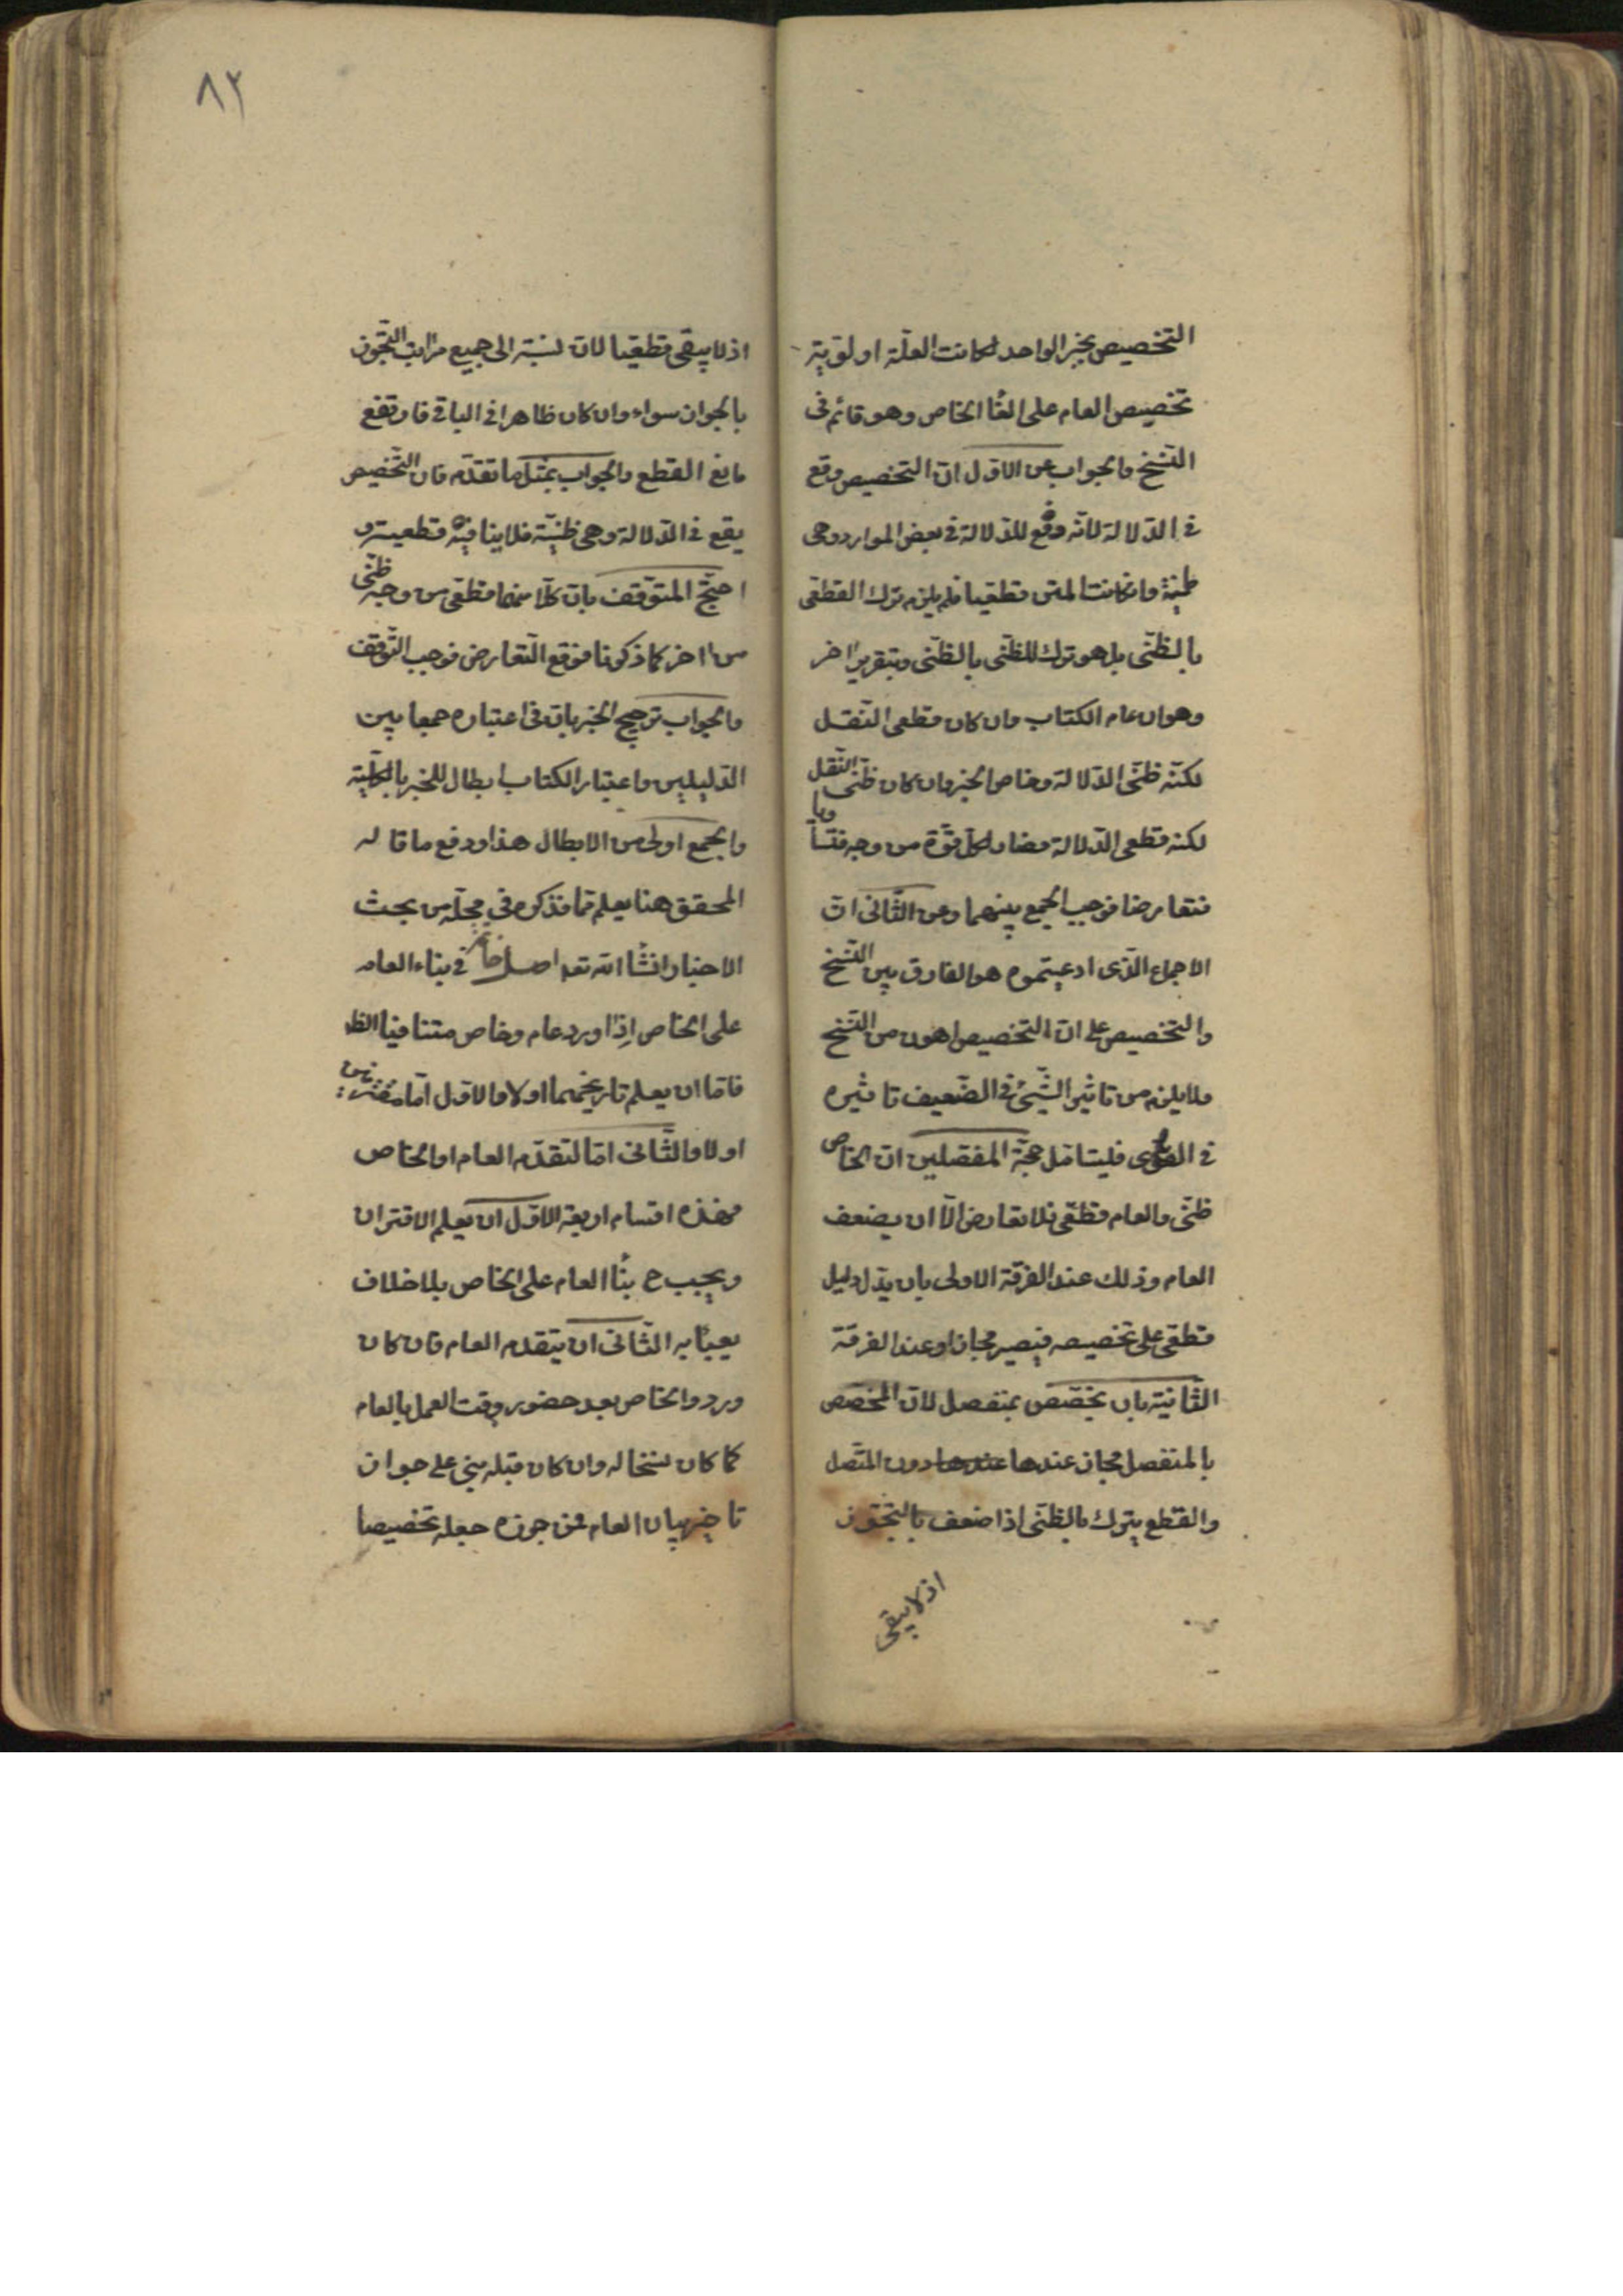 التخصيص بخبر الواحد لكانت العلة اولوية
تخصيص العام على الغا الخاص وهو قائم فى
النسخ والجواب عن الاول ان التخصيص وقع
فى الدلالة لانه دفع للدلالة فى بعض الموارد وهى
ظنية وان كانت المتن قطعيا فلم يلزم ترك القطعى
بالظنى بل هو ترك للظنى بالظنى وبتقرير اخر
وهو ان عام الكتاب وان كان قطعى النقل
لكنه ظنى الدلالة وخاص الخبر وان كان ظنى النقل
لكنه قطعى الدلالة فصار لكل قوة من وجه فتساويا
فتعارضا فوجب الجمع بينهما وعن الثانى ان
الاجماع الذى ادعيتموه هو الفارق بين النسخ
والتخصيص على ان التخصيص اهون من النسخ
ولا يلزم من تاثير الشئ فى الضعيف تاثيره
فى القوى فليتامل حجة المفصلين ان الخاص
ظنى والعام قطعى فلا تعارض الا ان يضعف
العام وذلك عند الفرقة الاولى بان يدل دليل
قطعى على تخصيصه فيصير مجازا وعند الفرقة
الثانية بان يخصص بمنفصل لان المخصص
بالمنفصل مجاز عندها دون المتصل
والقطع يترك بالظنى اذا ضعف بالتجوز
اذ لا يبقى
٨٢
اذ لا يبقى قطعيا لان نسبته الى جميع مراتب التجوز
بالجواز سواء وان كان ظاهرا فى الباقى فارتفع
مانع القطع والجواب بمثل ما تقدم فان التخصيص
يقع فى الدلالة وهى ظنية فلا ينافيه قطعية
احتج المتوقف بان كلا منهما قطعى من وجه ظنى
من اخر كما ذكرنا فوقع التعارض فوجب التوقف
والجواب ترجيح الخبر بان فى اعتباره جمعا بين
الدليلين واعتبار الكتاب ابطال للخبر بالكلية
والجمع اولى من الابطال هذا ودفع ما قاله
المحقق هنا يعلم مما نذكره فى محله من بحث
الاخبار انشا الله تعه اصل فى بناء العام
على الخاص اذا ورد عام وخاص متنافيا الظا
فاما ان يعلم تاريخهما اولا والاول اما مقترنين
اولا والثانى اما لتقدم العام او الخاص
فهذه اقسام اربعة الاول ان يعلم الاقتران
ويجب ح بنا العام على الخاص بلا خلاف
يعبا به الثانى ان يتقدم العام فان كان
ورود الخاص بعد حضور وقت العمل بالعام
كان نسخا له وان كان قبله بنى على جواز
تاخير بيان العام فمن جوزه جعله تخصيصا